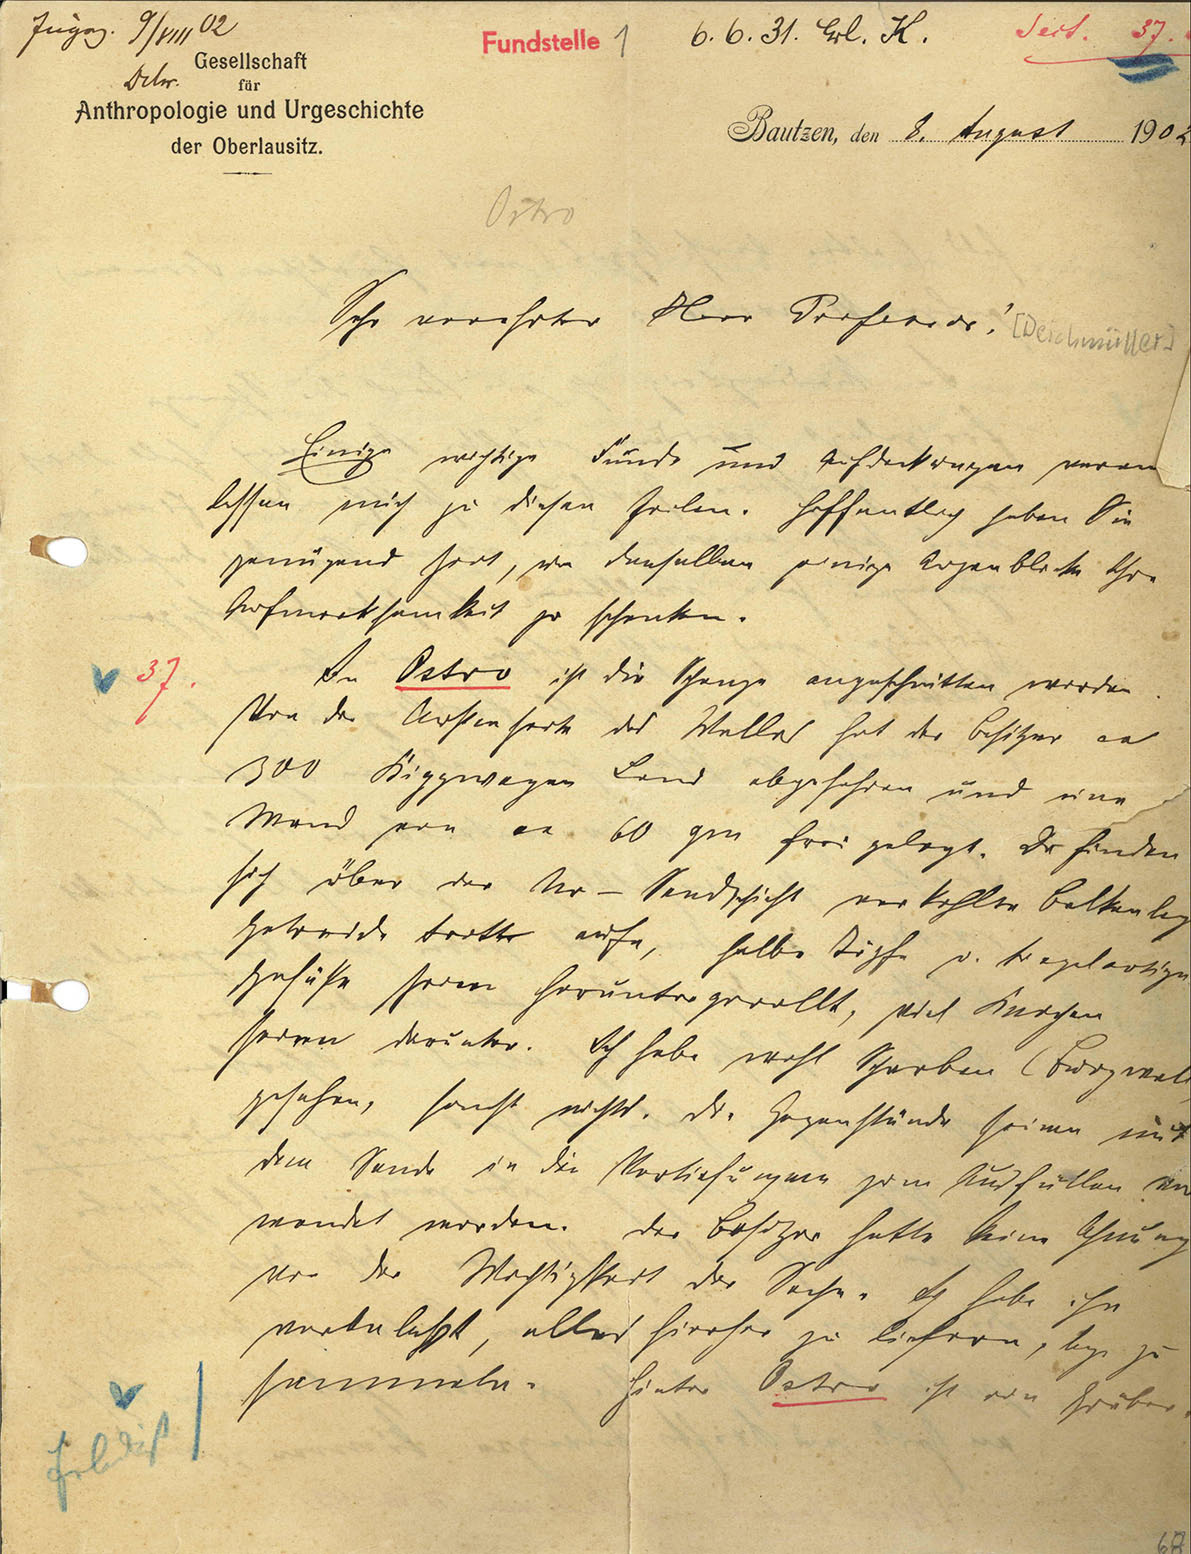 Zugeg. 9/VIII 02
Fundstelle 1
6. 6. 31. Erl. K.
Seit. 37.
Gesellschaft
für
Anthropologie und Urgeschichte
der Oberlausitz.
Bautzen, den 8. August 1902
Ostro
Sehr verehrter Herr Professor! [Deichmüller]
Einige wichtige Funde und Aufdeckungen veran
lassen mich zu diesen Zeilen. Hoffentlich haben Sie
genügend Zeit, um denselben einige Augenblicke Ihre
Aufmerksamkeit zu schenken.
37.
In Ostro ist die Schanze angeschnitten worden.
Von der Aussenseite des Walles hat der Besitzer ca
300 Kippwagen Land abgefahren und eine
Wand von ca 60 qm frei gelegt. Da finden
sich über der Ur-Sandschicht verkohlte Balkenlag
Getreide tritt auf, halbe Töpfe u. tiegelartige
Gefäße seien heruntergerollt, viel Knochen
seien darunter. Ich habe wohl Scherben (Burgwall
gesehen, sonst nichts. Die Gegenstände seien mit
dem Sande in die Vertiefungen zum Ausfüllen ver
wendet worden. Der Besitzer hatte keine Ahnung
von der Wichtigkeit der Sache. Ich habe ihn
veranlaßt, alles hierher zu liefern, bzw. zu
sammeln. Hinter Ostro ist ein Gräber.